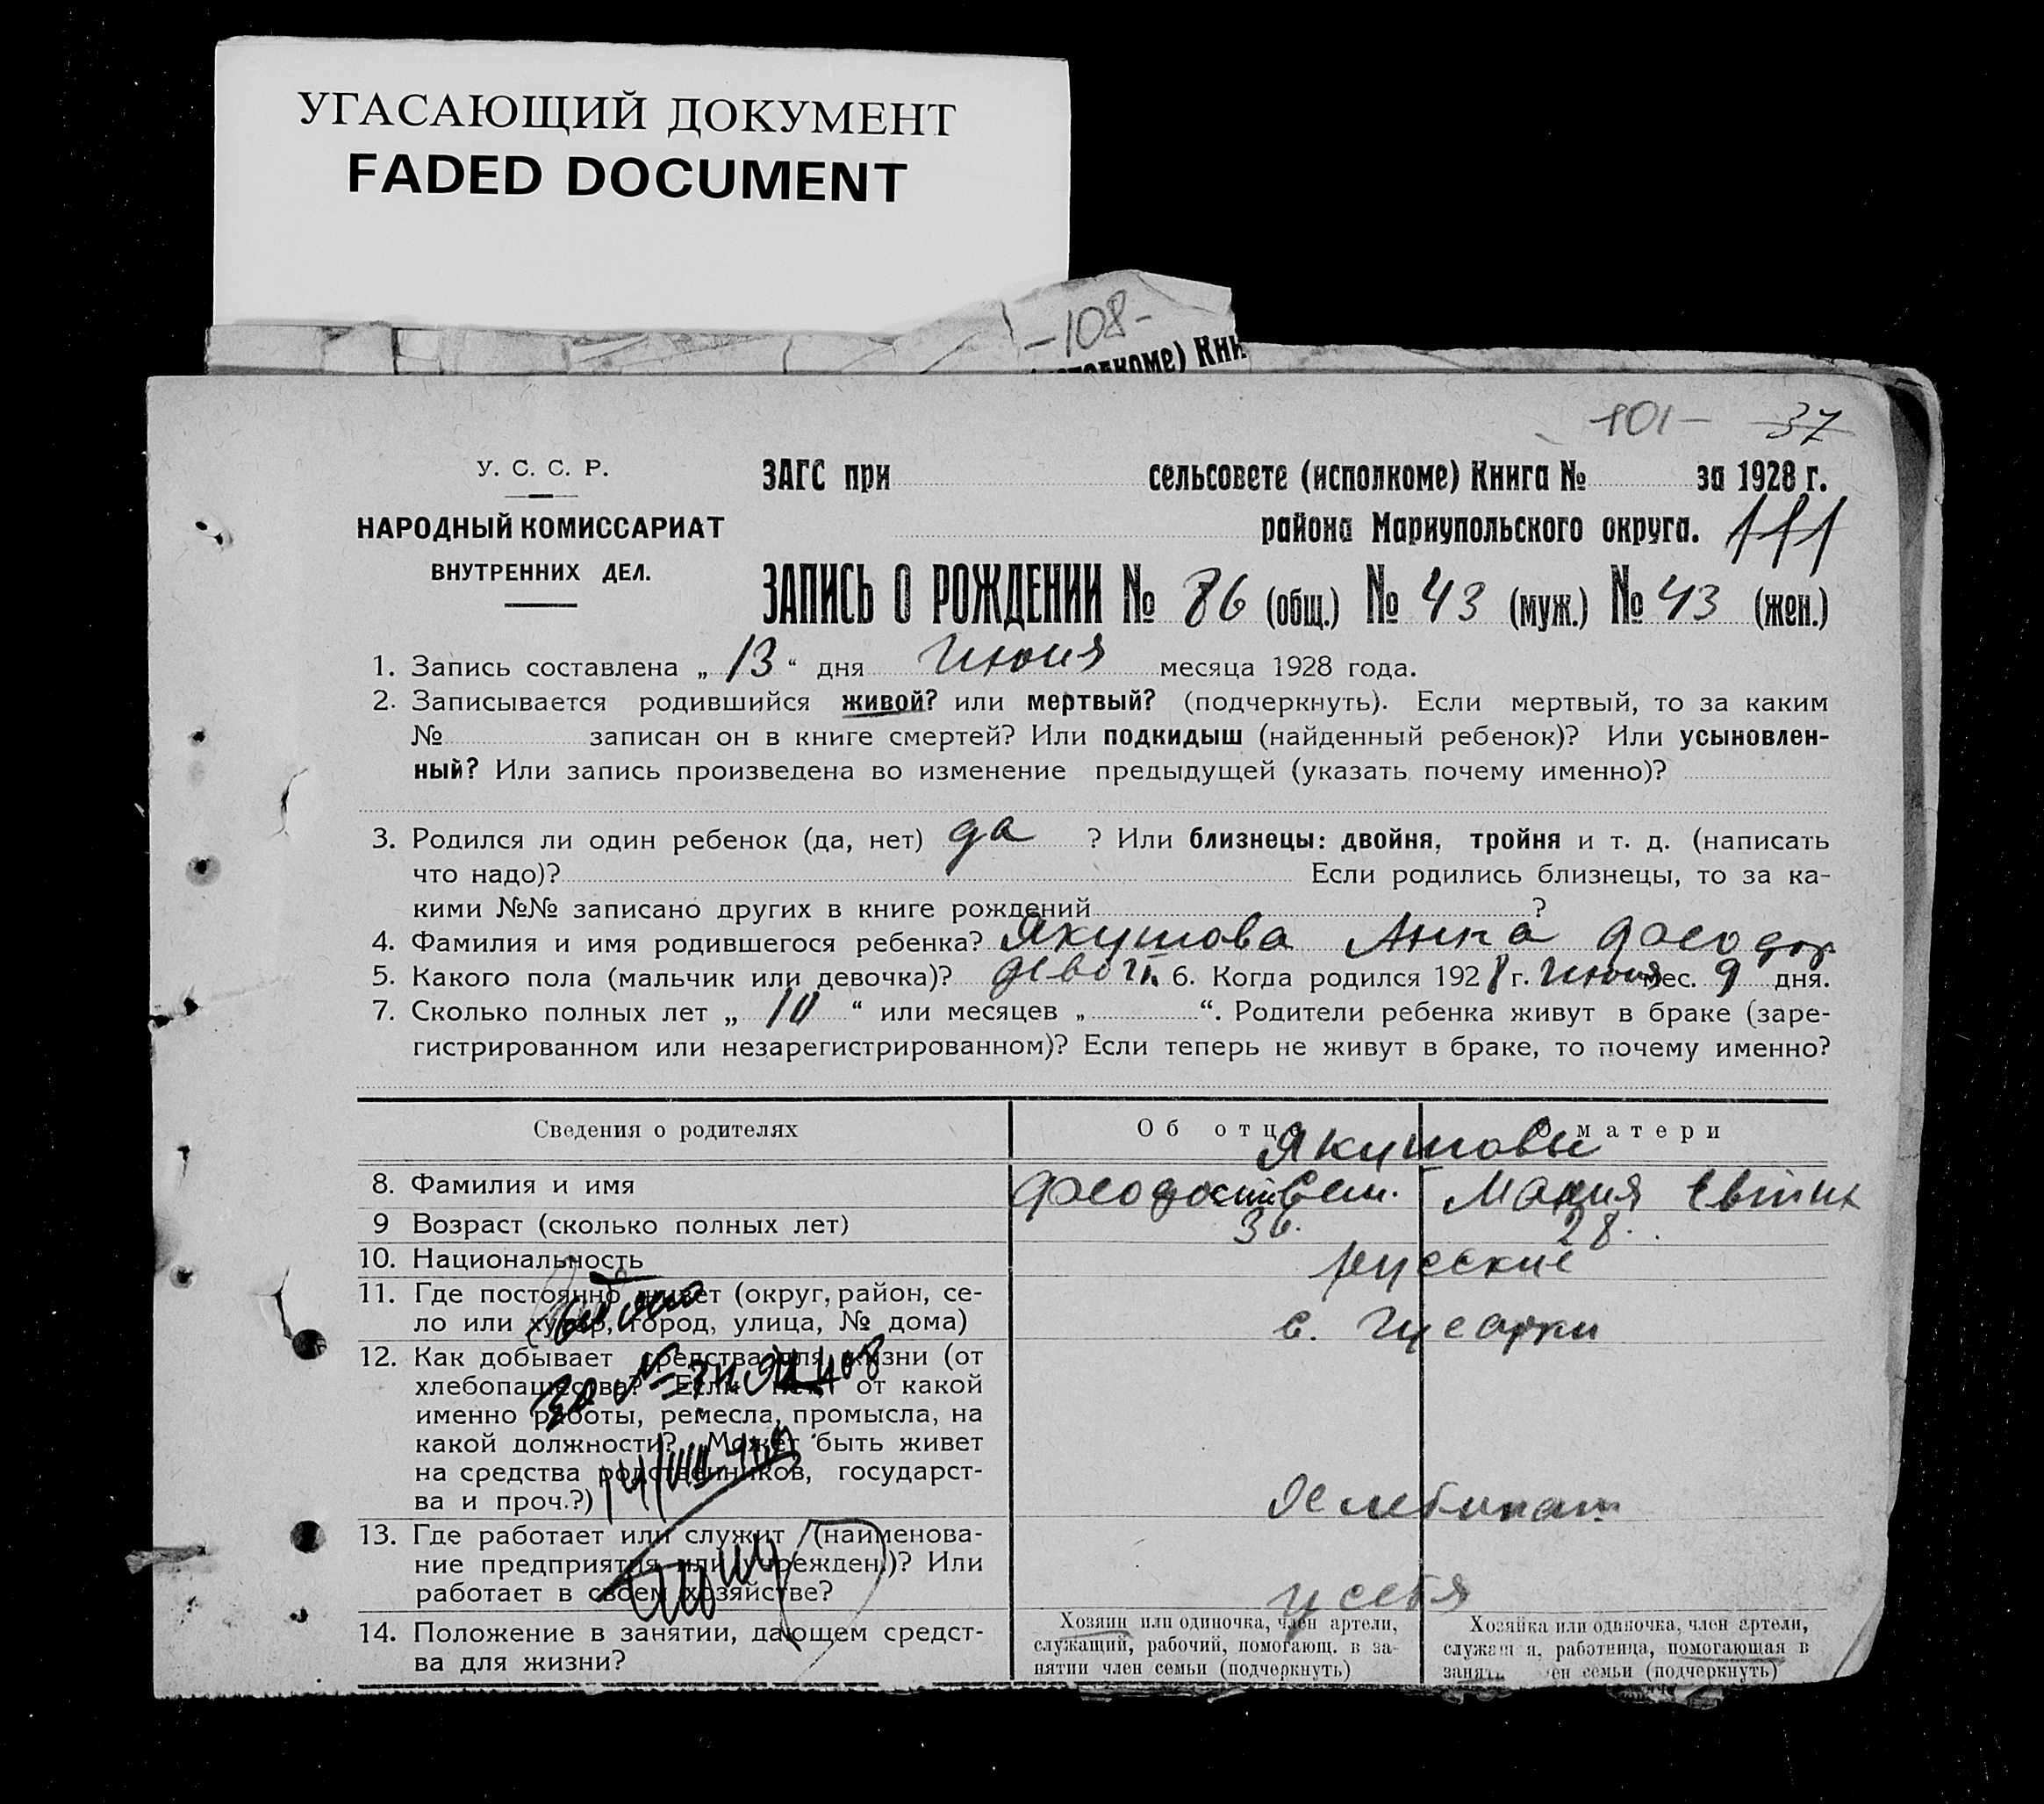 УГАСАЮЩИЙ ДОКУМЕНТ
FADED DOCUMENT
-108-
коме) Кни
101- 37
У. С. С. Р.
НАРОДНЫЙ КОМИССАРИАТ
ВНУТРЕННИХ ДЕЛ.
ЗАГС при сельсовете (исполкоме) Книга № за 1928 г.
района Мариупольского округа. 111
ЗАПИСЬ О РОЖДЕНИИ № 86 (общ.) № 43 (муж.) № 43 (жен.)
1. Запись составлена „ 13 “ дня июня месяца 1928 года.
2. Записывается родившийся живой? или мертвый? (подчеркнуть). Если мертвый, то за каким
№ записан он в книге смертей? Или подкидыш (найденный ребенок)? Или усыновлен-
ный? Или запись произведена во изменение предыдущей (указать почему именно)?
3. Родился ли один ребенок (да, нет) да ? Или близнецы: двойня, тройня и т. д. (написать
что надо)? Если родились близнецы, то за ка-
кими №№ записано других в книге рождений ?
4. Фамилия и имя родившегося ребенка? Якушова Анна Феодор
5. Какого пола (мальчик или девочка)? девоч. 6. Когда родился 1928 г. июня мес. 9 дня.
7. Сколько полных лет „ 10 “ или месяцев „ “. Родители ребенка живут в браке (заре-
гистрированном или незарегистрированном)? Если теперь не живут в браке, то почему именно?
Сведения о родителях Об отце О матери
Якушовы
8. Фамилия и имя Сем. Мария Евтих
9 Возраст (сколько полных лет) 36. 28.
10. Национальность русские
11. Где постоянно живет (округ, район, се-
ло или хутор, город, улица, № дома) с. Гусарки
12. Как добывает средства для жизни (от
хлебопашества? Если нет, от какой
именно работы, ремесла, промысла, на
какой должности? Может быть живет
на средства родственников, государст-
ва и проч.?) Хлебопаш
13. Где работает или служит (наименова-
ние предприятия или учрежден.)? Или
работает в своем хозяйстве? у себя
14. Положение в занятии, дающем средст-
ва для жизни?
Хозяин или одиночка, член артели,
служащий, рабочий, помогающ. в за-
нятии член семьи (подчеркнуть)
Хозяйка или одиночка, член артели,
служащая, работница, помогающая в
семьи (подчеркнуть)